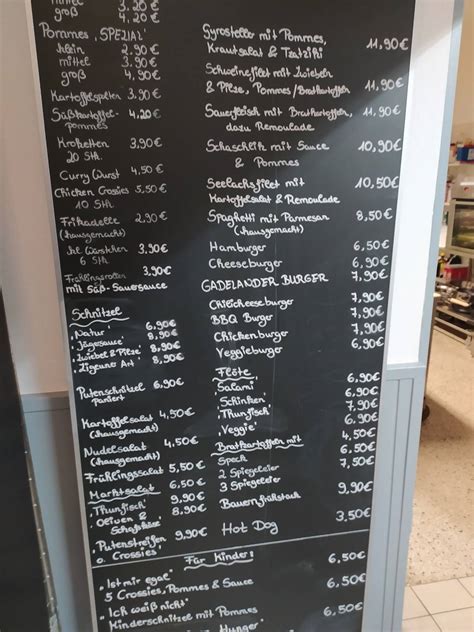 mittel 3.20€
groß 4.20€
Pommes 'SPEZIAL'
klein 2.90€
mittel 3.90€
groß 4.90€
Kartoffelspalten 3.90€
Süßkartoffel- 4.20€
pommes
Kroketten 3.90€
20 Stk.
Curry Wurst 4,50€
Chicken Crossies 5,50€
10 Stk
Frikadelle 2,90€
(hausgemacht)
6 Stk 3.90€
Frühlingsrollen 3.90€
mit Süß-Sauersauce
Schnitzel
'Natur' 6,90€
'Jägersauce' 8,90€
'Zwiebel & Pilze' 8,90€
'Zigeuner Art' 8,90€
Putenschnitzel 6,90€
paniert
Kartoffelsalat 4,50€
(hausgemacht)
Nudelsalat 4.50€
(hausgemacht)
Frühlingssalat 5,50€
Marktsalat 6,50€
'Thunfisch' 9,90€
'Oliven & 8,90€
Schafskäse'
'Putenstreifen 9,90€
o. Crossies'
Gyrosteller mit Pommes,
Krautsalat & Tzatziki 11,90€
Schweinefilet mit Zwiebeln
& Pilze, Pommes/Bratkartoffeln 11,90€
Sauerfleisch mit Bratkartoffeln, 11,90€
dazu Remoulade
Schaschlik mit Sauce 10,90€
& Pommes
Seelachsfilet mit 10,50€
Kartoffelsalat & Remoulade
Spaghetti mit Parmesan 8,50€
(hausgemacht)
Hamburger 6,50€
Cheeseburger 6,90€
GADELANDER BURGER 7,90€
Chilicheeseburger 7,90€
BBQ Burger 7,90€
Chickenburger 6,90€
Veggieburger 7,50€
Flöte
'Salami' 6,90€
'Schinken' 6,90€
'Thunfisch' 7,90€
'Veggie' 6,90€
Bratkartoffeln mit 4,50€
Speck 6,50€
2 Spiegeleier 7,50€
3 Spiegeleier
Bauernfrühstück 9,90€
Hot Dog 3.50€
Für Kinder:
'Ist mir egal' 6,50€
5 Crossies, Pommes & Sauce
'Ich weiß nicht' 6,50€
Kinderschnitzel mit Pommes
Hunger' 6,50€